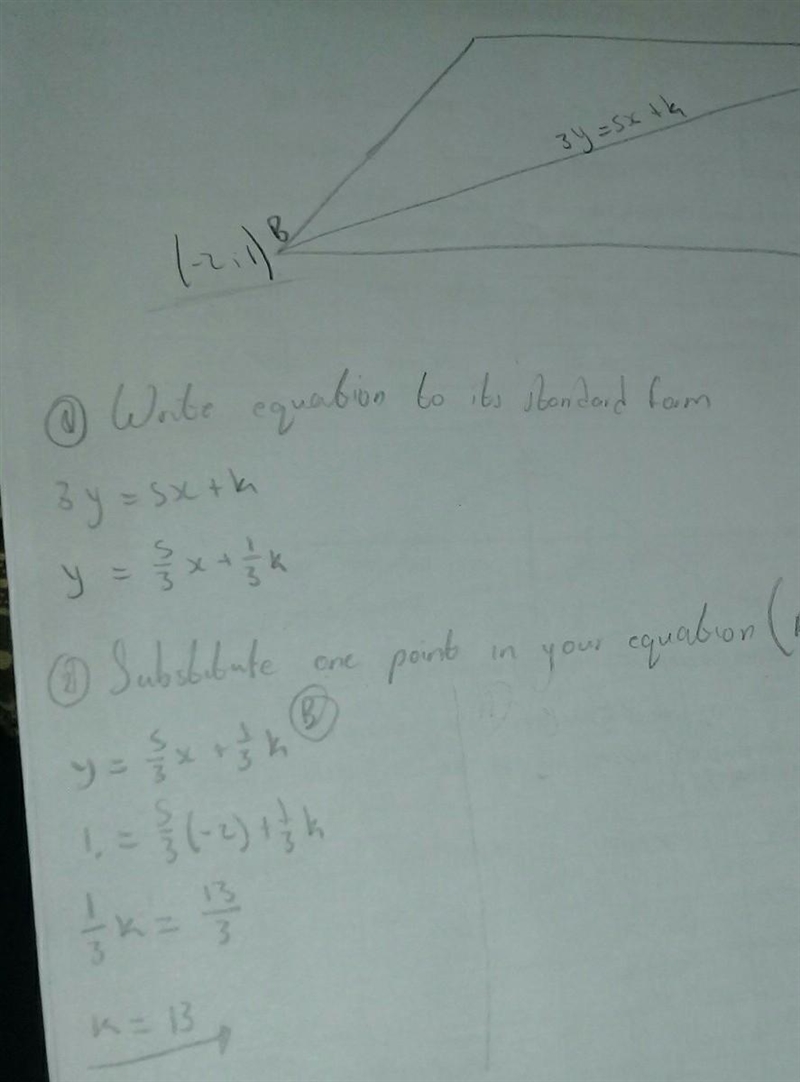 3y=5x+k
B
(-2,1)
① Write equation to its standard form
3y = 5x + k
y = 5/3 x + 1/3 k
② Substitute one point in your equation (
y = 5/3 x + 1/3 k Ⓑ
1 = 5/3 (-2) + 1/3 k
1/3 k = 13/3
k = 13